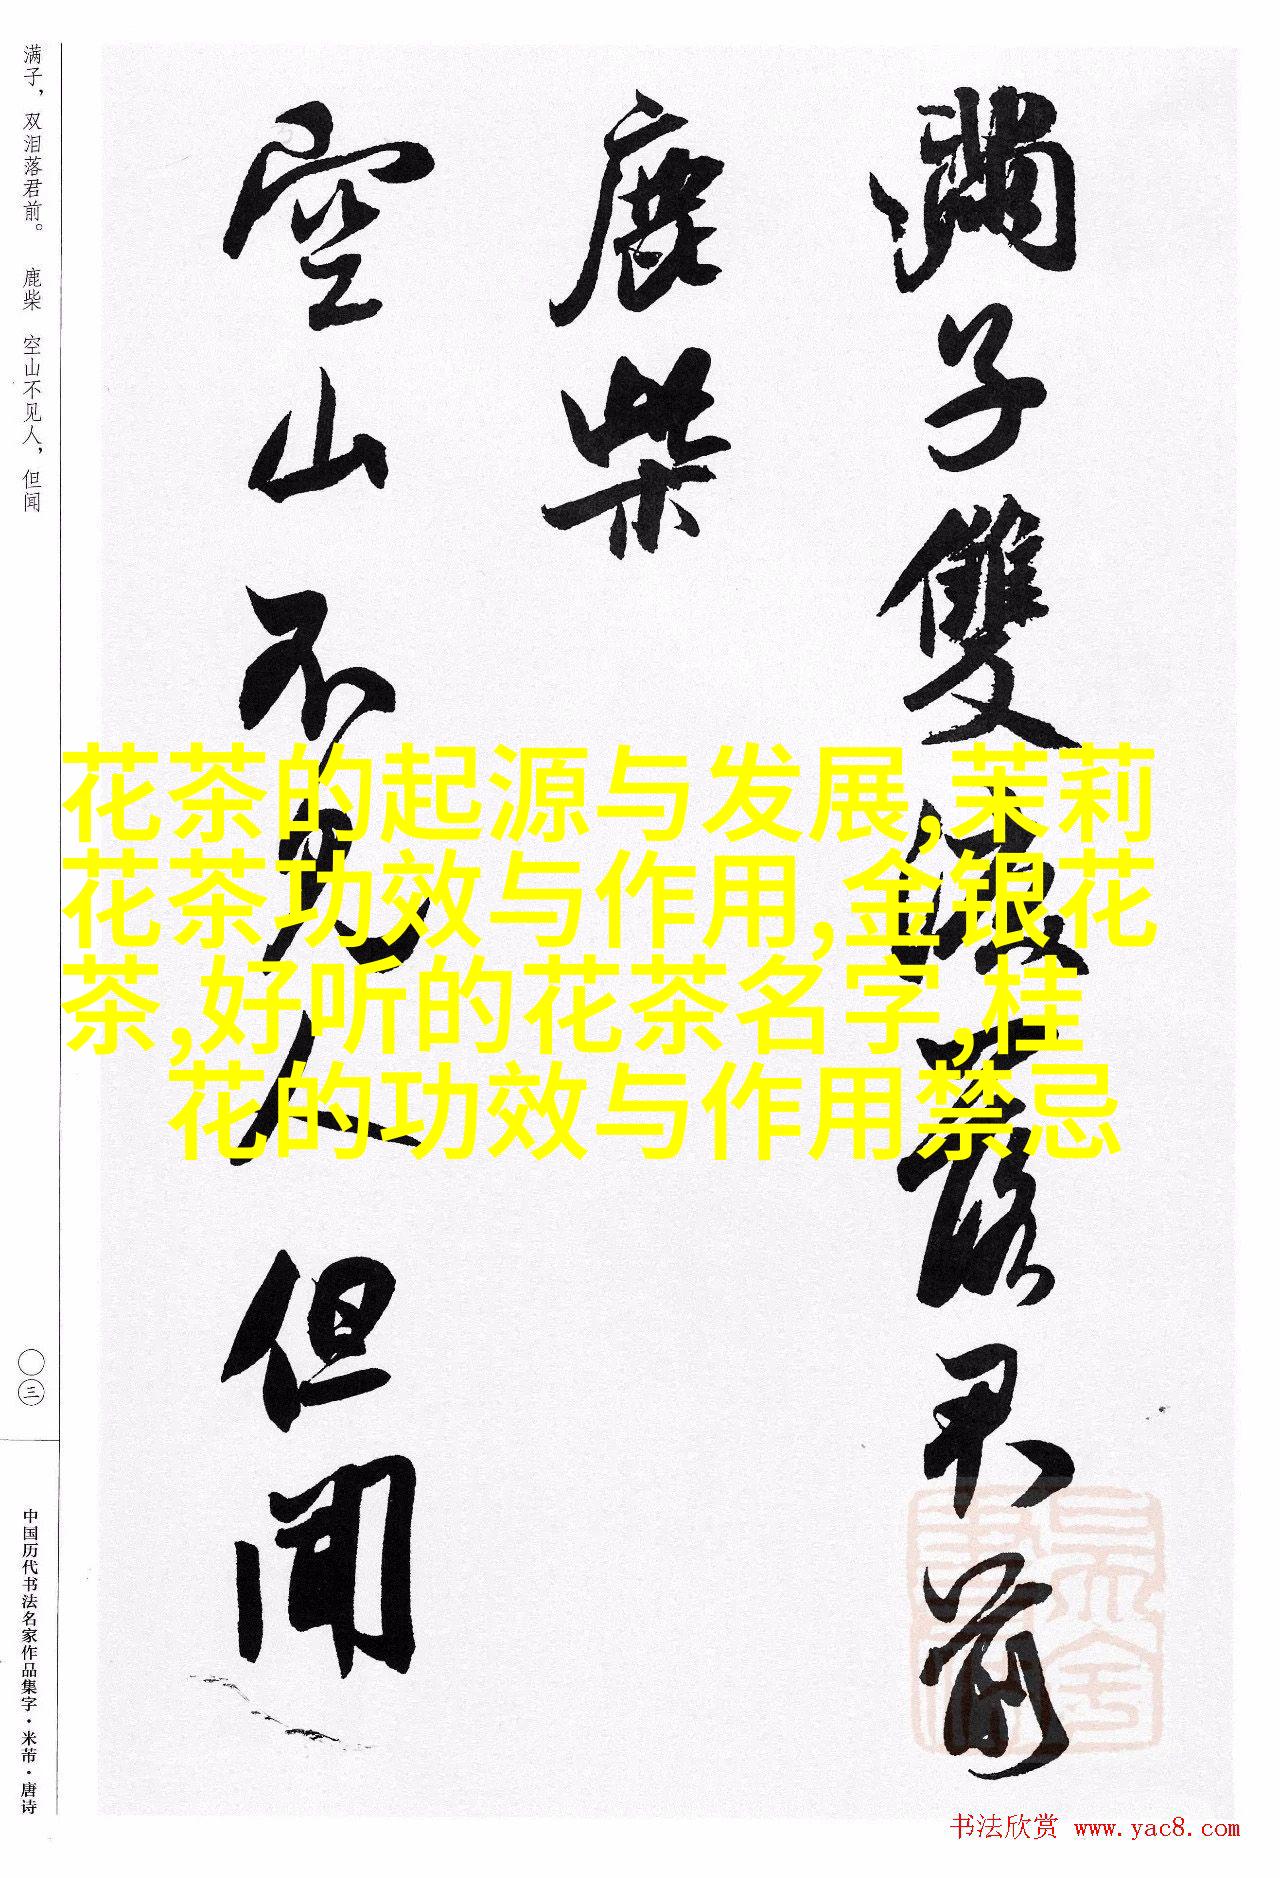 满子，双泪落君前。　鹿柴　空山不见人，但闻
〇三
中国历代书法名家作品集字·米芾·唐诗
滿子雙淚落君前
鹿柴
空山不見人但聞
花茶的起源与发展,茉莉
花茶功效与作用,金银花
茶,好听的花茶名字,桂
花的功效与作用禁忌
书法欣赏 www.yac8.com